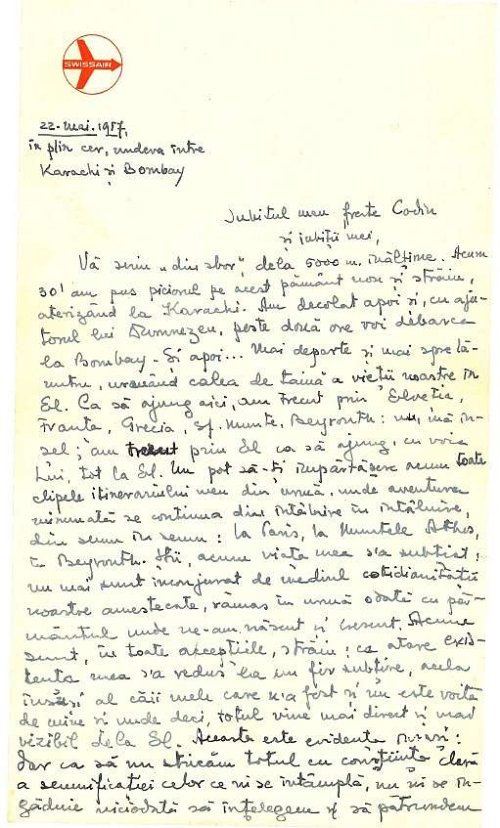 SWISSAIR
22. mai. 1957,
în plin cer, undeva între
Karachi și Bombay
Iubitul meu frate Codin
și iubiții mei,
Vă scriu „din sbor", dela 5000 m. înălțime. Acum
30' am pus piciorul pe acest pământ nou și străin,
aterizând la Karachi. Am decolat apoi și, cu aju-
torul lui Dumnezeu, peste două ore voi debarca
la Bombay. Și apoi... Mai departe și mai spre lă-
untru, urmând calea de taină a vieții noastre în
El. Ca să ajung aici, am trecut prin Elveția,
Franța, Grecia, Sf. Munte, Beyrouth: nu, mă în-
șel; am trecut prin El ca să ajung, cu voia
Lui, tot la El. Nu pot să-ți împărtășesc acum toate
clipele itinerariului meu din urmă, unde aventura
minunată se continua din întâlnire în întâlnire,
din semn în semn: la Paris, la Muntele Athos,
în Beyrouth. Știi, acum viața mea s'a subțiat;
nu mai sunt înconjurat de mediul cotidianității
noastre amestecate, rămas în urmă odată cu pă-
mântul unde ne-am născut și crescut. Acum
sunt, în toate accepțiile, străin; ca atare exis-
tența mea s'a redus la un fir subțire, acela
însuși al căii mele care n'a fost și nu este voită
de mine și unde deci, totul vine mai direct și mai
vizibil dela El. Aceasta este evidența
Dar ca să nu stricăm totul cu conștiința clară
a semnificației celor ce ni se întâmplă, nu ni se în-
găduie niciodată să înțelegem și să pătrundem